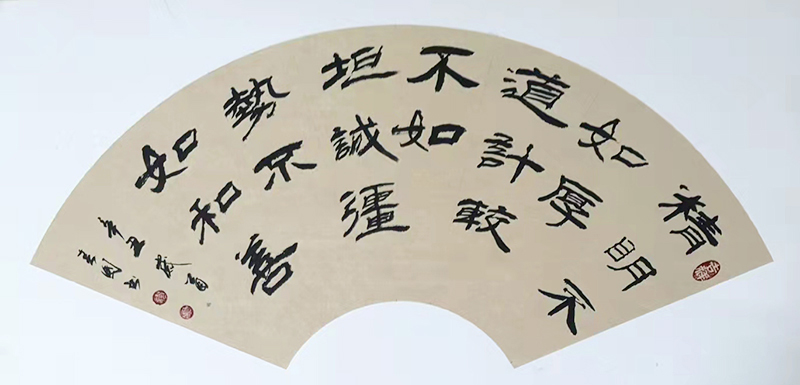 精明不
如厚
道計較
不如
坦誠彊
勢不
如和善
辛丑歲